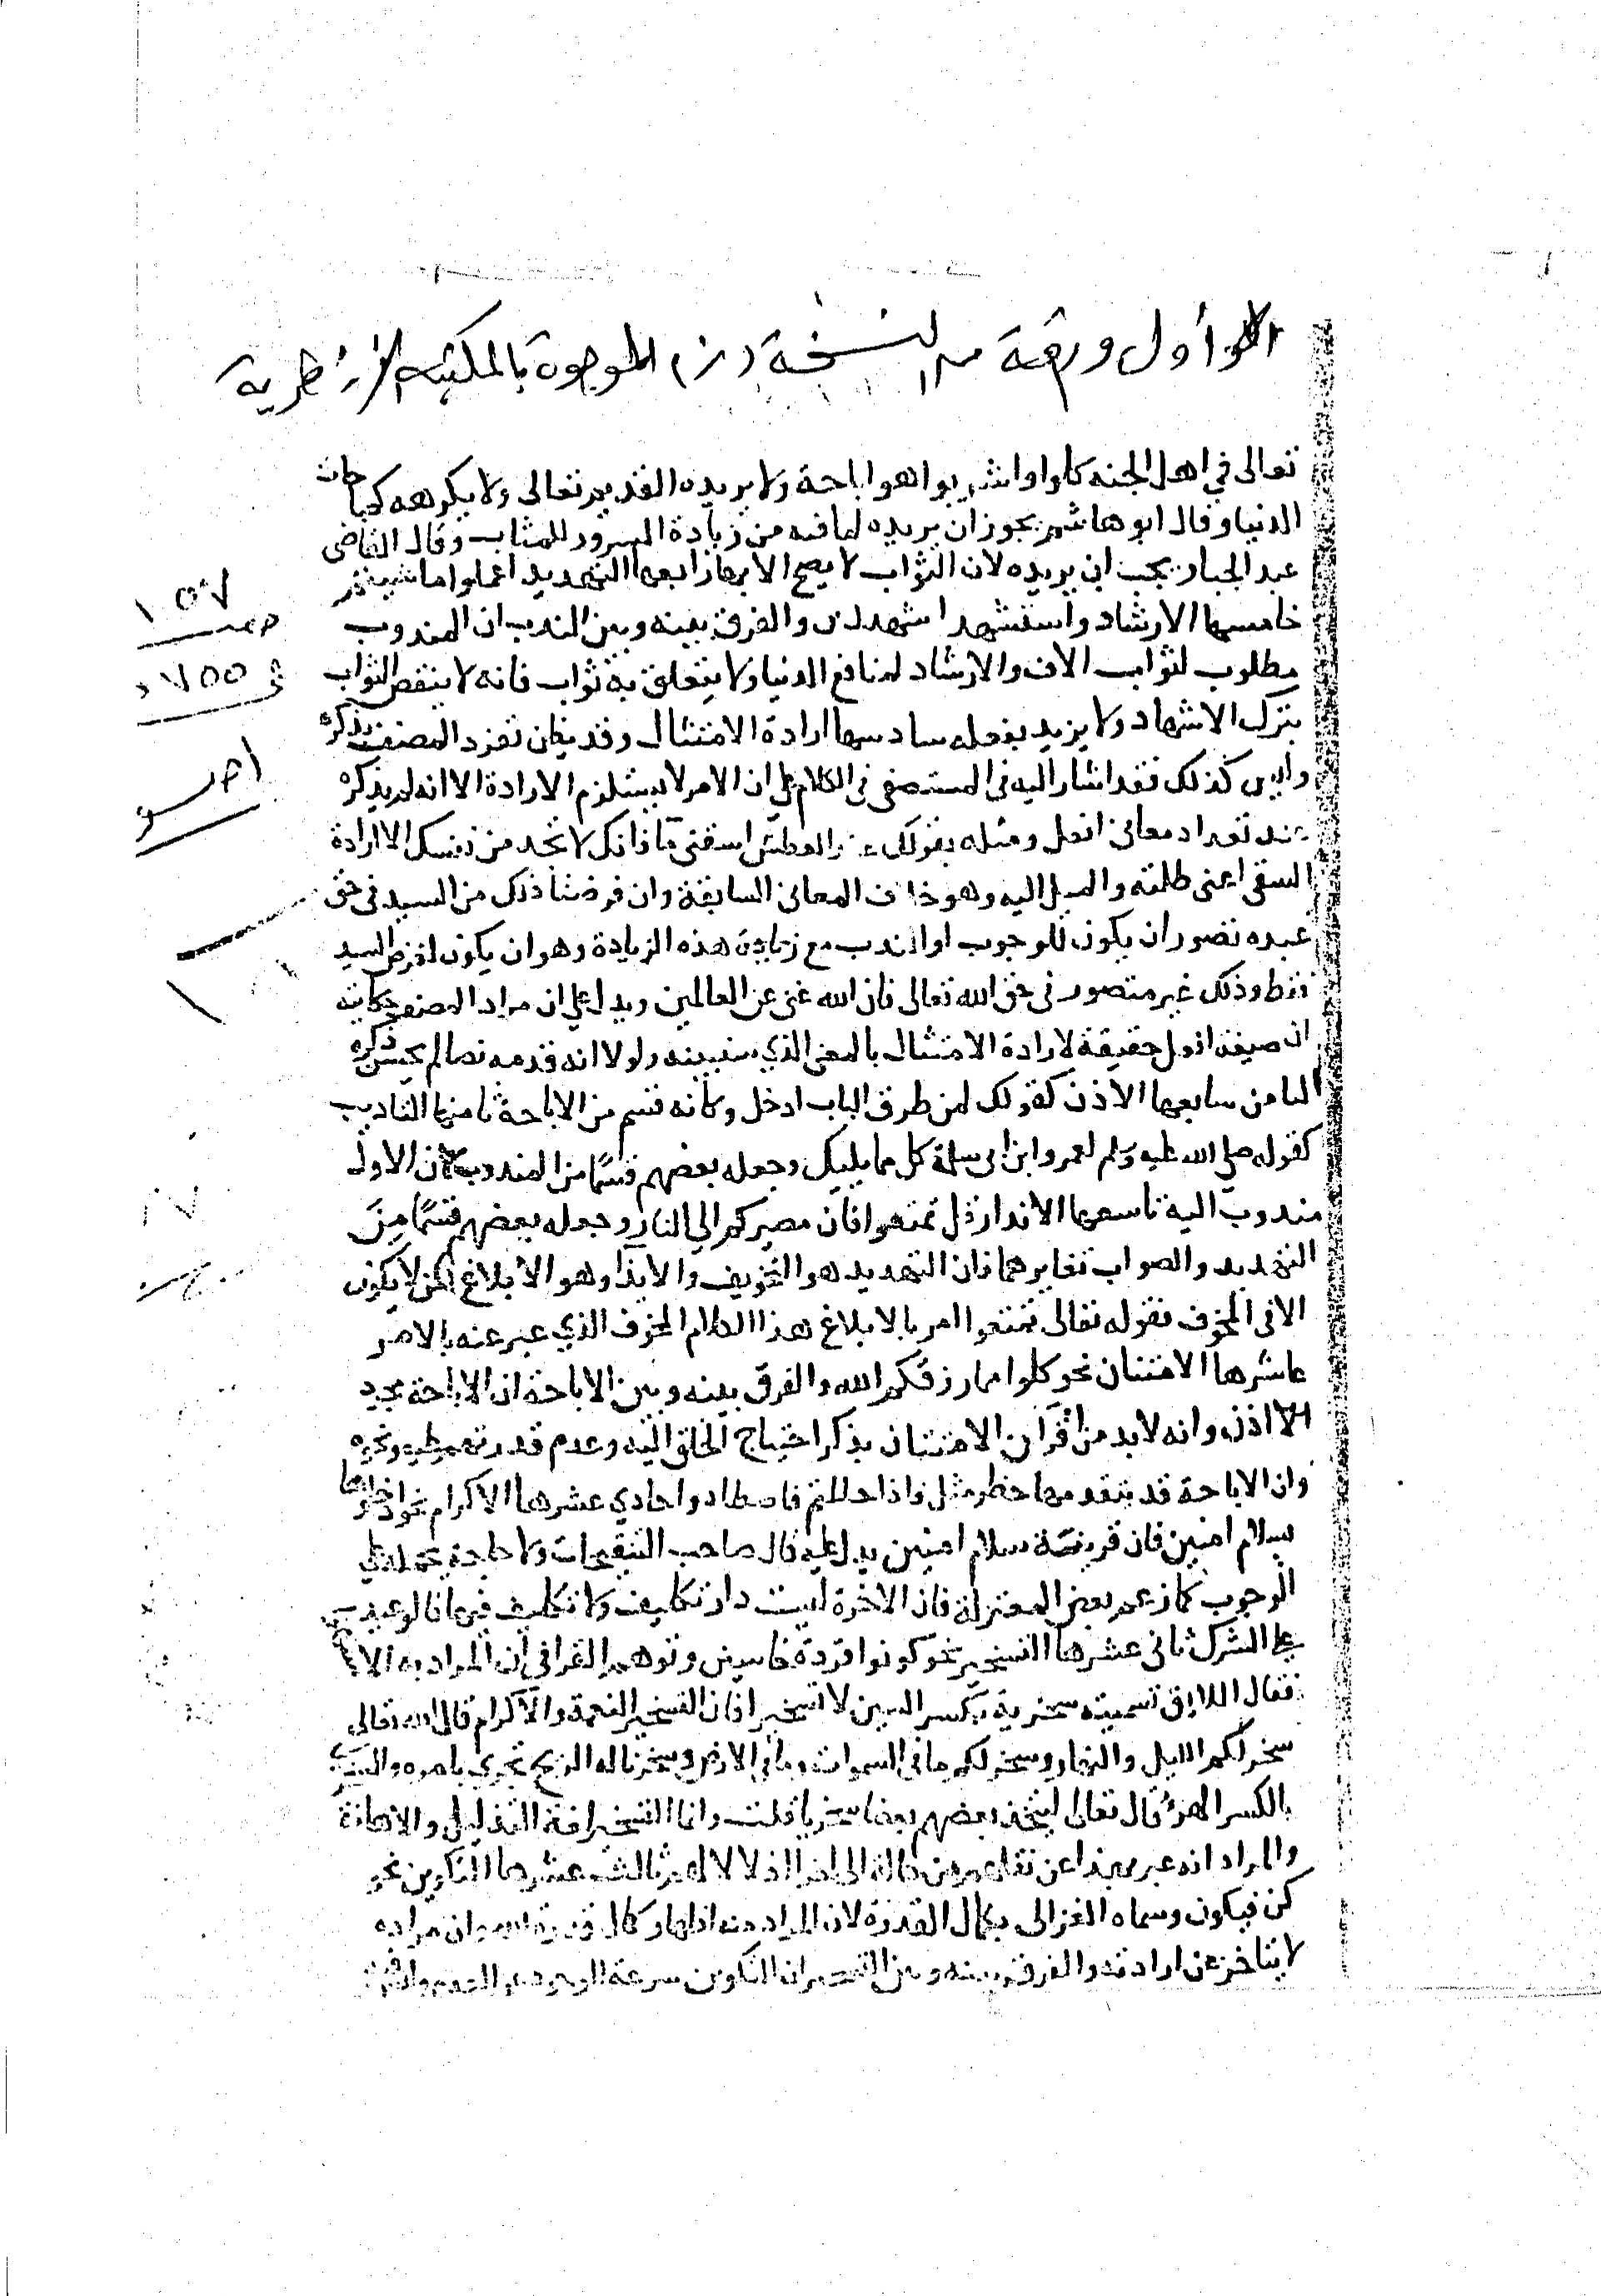 أول ورقة من النسخة (ز) الموجودة بالمكتبة الأزهرية
تعالى في اهل الجنه كلوا واشربوا هو اباحة ولا يريده القديم تعالى ولا يكرهه كمباحات
الدنيا وقال ابو هاشم يجوز ان يريده لما فيه من زيادة السرور للمثاب وقال القاضى
عبد الجبار يجب ان يريده لان الثواب لا يصح الا بها رابعها التهديد اعملوا ما شيتم
خامسها الارشاد واستشهدوا شهيدين والفرق بينه وبين الندب ان المندوب
مطلوب لثواب الاخرة والارشاد لمنافع الدنيا ولا يتعلق به ثواب فانه لا ينتقص الثواب
بترك الاشهاد ولا يزيد بفعله سادسها ارادة الامتثال وقد يظن تفرد المصنف بذكره
وليس كذلك فقد اشار اليه في المستصفى في الكلام على ان الامر لا يستلزم الارادة الا انه لم يذكره
عند تعداد معانى افعل ومثله بقولك عند العطش اسقنى ما فانك لا تجد من نفسك الا ارادة
السقى اعنى طلبه والميل اليه وهو خلاف المعانى السابقة وان فرضنا ذلك من السيد في حق
عبده تصور ان يكون للوجوب او الندب مع زيادة هذه الزيادة وهو ان يكون لغرض السيد
فقط وذلك غير متصور في حق الله تعالى فان الله غنى عن العالمين ويدل على ان مراد المصنف حكاية
ان صيغة افعل حقيقة لارادة الامتثال بالمعنى الذي سنبينه ولولا انه قدمه نصا لم يحسن ذكره
الثامن سابعها الاذن كقولك لمن طرق الباب ادخل وكانه قسم من الاباحة ثامنها التاديب
كقوله صلى الله عليه وسلم لعمرو ابن ابى سلمة كل مما يليك وجعله بعضهم قسمًا من المندوب لان الاول
مندوب اليه تاسعها الانذار قل تمتعوا فان مصيركم الي النار وجعله بعضهم قسمًا من
التهديد والصواب تغايرهما فان التهديد هو التخويف والانذار هو الابلاغ لكن لا يكون
الا في المخوف فقوله تعالى تمتعوا امر بالابلاغ هذا الكلام المخوف الذي عبر عنه بالامر
عاشرها الامتنان نحو كلوا مما رزقكم الله والفرق بينه وبين الاباحة ان الاباحة مجرد
الاذن وانه لا بد من اقتران الامتنان بذكر احتياج الخلق اليه وعدم قدرتهم عليه ونحوه
وان الاباحة قد يتقدمها حظر مثل واذا حللتم فاصطادوا حادي عشرها الاكرام نحو ادخلوها
بسلام امنين فان قرينة بسلام امنين يدل عليه قال صاحب التنقيحات ولا حاجة بحمله على
الوجوب كما زعم بعض المعتزلة فان الاخرة ليست دار تكليف ولا تكليف فيها
على الشرك ثانى عشرها التسخير نحو كونوا قردة خاسين وتوهم القرافي ان المراد به
فقال اللايق تسميته سخرية بكسر السين لا تسخيرا فان التسخير النعمة والاكرام قال الله تعالى
سخر لكم الليل والنهار وسخر لكم ما في السموات وما في الارض وسخرنا له الريح تجري بامره
بالكسر الهزء قال تعالى ليتخذ بعضهم بعضا سخريا قلت وانما التسخير لغة التذليل والاهانة
والمراد انه عبر بهذا عن نقلهم من حالة الى اخرى اذلالا لهم ثالث عشرها التكوين نحو
كن فيكون وسماه الغزالى بكمال القدرة لان المراد منه اظهار كمال قدرة الله وان مراده
لا يتاخر عن ارادته والفرق بينه وبين التسخير ان التكوين سرعة الوجود عن العدم